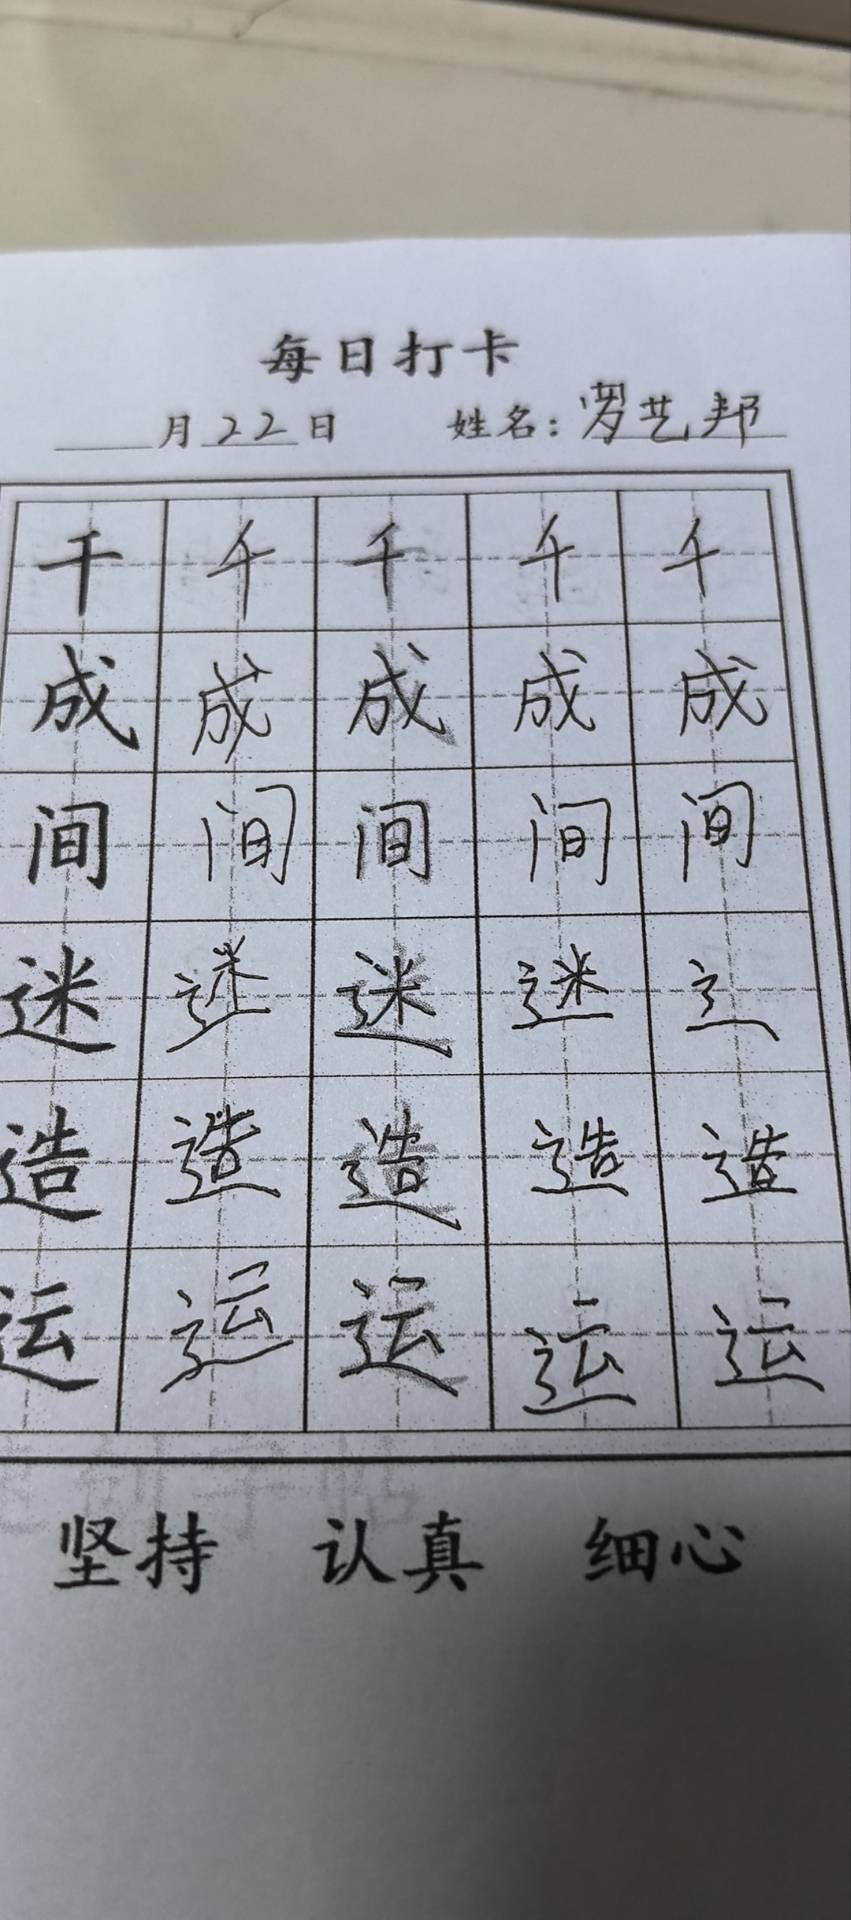 每日打卡
月22日 姓名：罗艺邦
千 千 千 千 千
成 成 成 成 成
间 间 间 间 间
迷 迷 迷 迷 辶
造 造 造 造 造
运 运 运 运 运
坚持 认真 细心